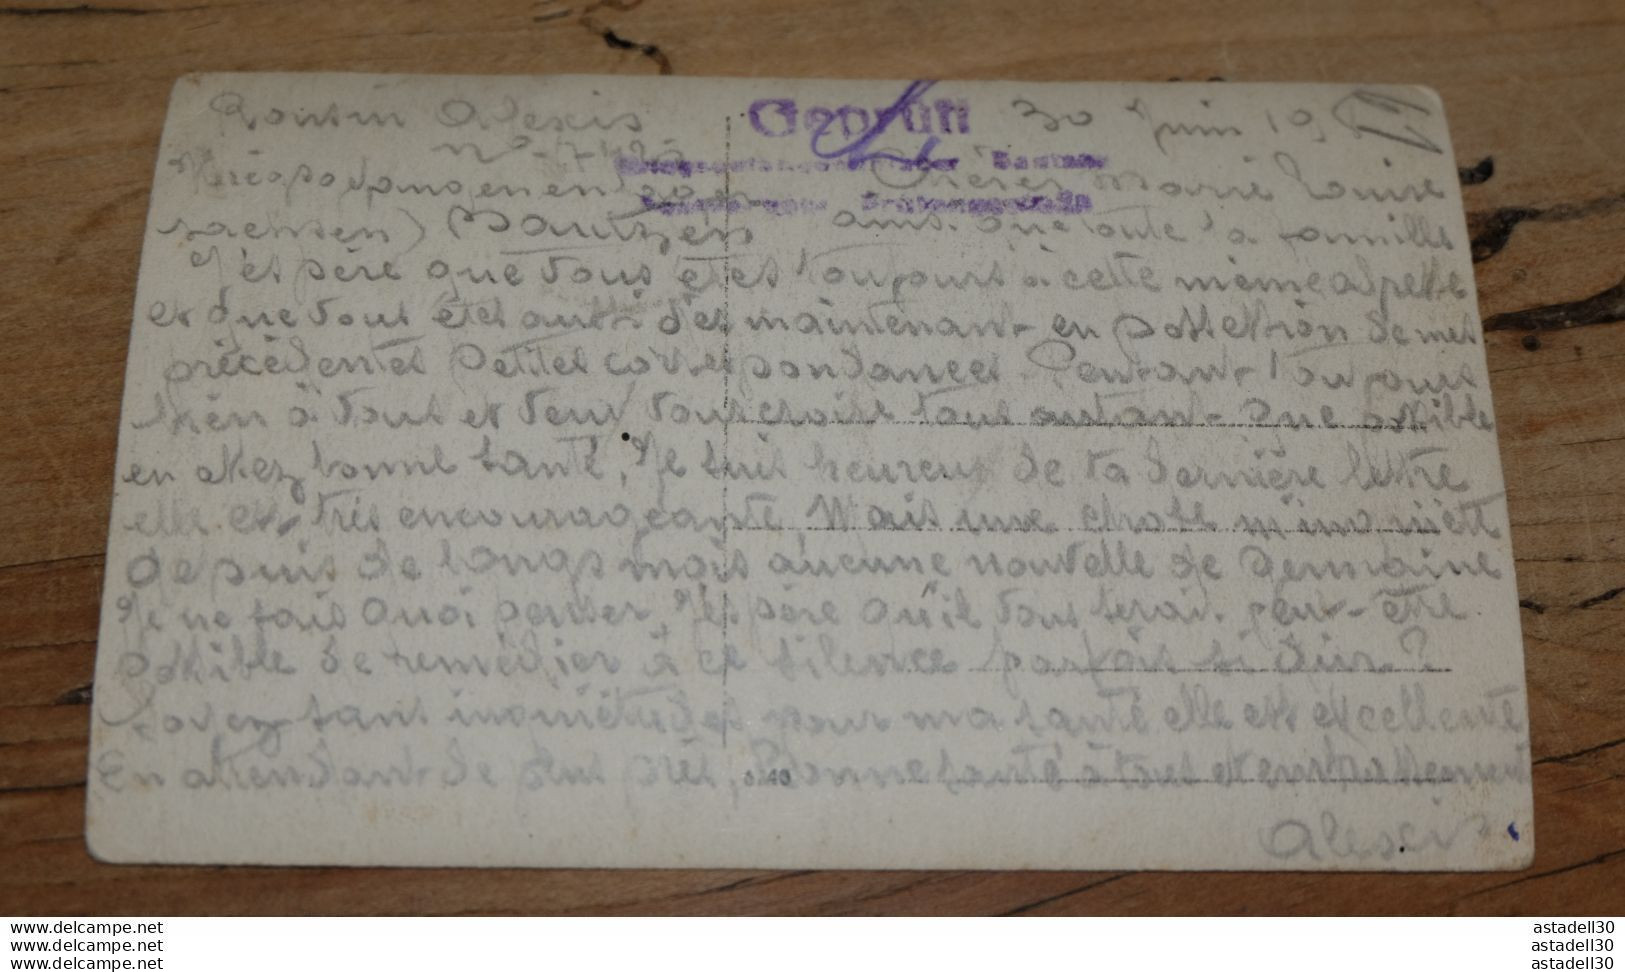 Alexis
30 Juin 19
Geprüft
Chères Marie Louise
sachsen) Bautzen
ainsi que toute la famille
J'espère que vous êtes toujours à cette même adresse
et que vous êtes aussi dès maintenant en possession de mes
précédentes petites correspondances Pensant toujours
bien à vous et veux vous croire tous autant que possible
en assez bonne santé, Je suis heureux de ta dernière lettre
elle est très encourageante Mais une chose m'inquiète
depuis de longs mois aucune nouvelle de Germaine
Je ne sais quoi penser, J'espère qu'il vous serai peut-être
possible de remédier à ce silence parfois si dur?
Soyez sans inquiétudes pour ma santé elle est excellente
En attendant de plus près, Bonne santé à tous et
Alexis
www.delcampe.net
www.delcampe.net
www.delcampe.net
astadell30
astadell30
astadell30